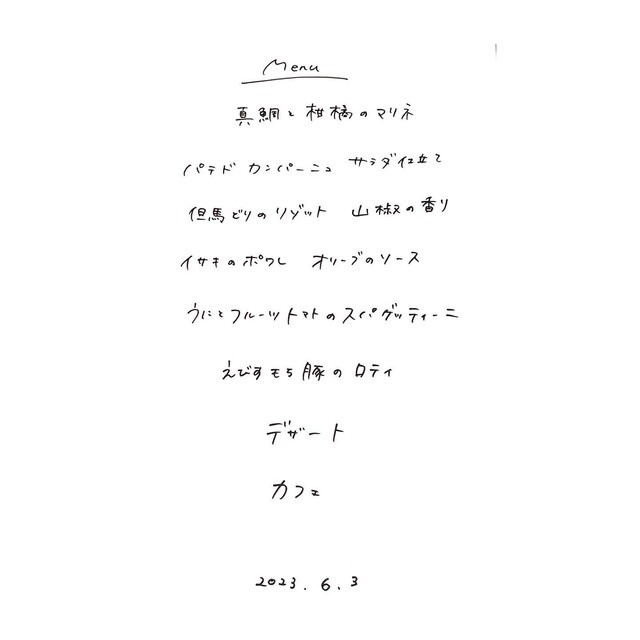 Menu
真鯛と柑橘のマリネ
パテド カンパーニュ サラダ仕立て
但馬どりのリゾット 山椒の香り
イサキのポワレ オリーブのソース
うにとフルーツトマトのスパゲッティーニ
えびすもち豚のロティ
デザート
カフェ
2023.6.3